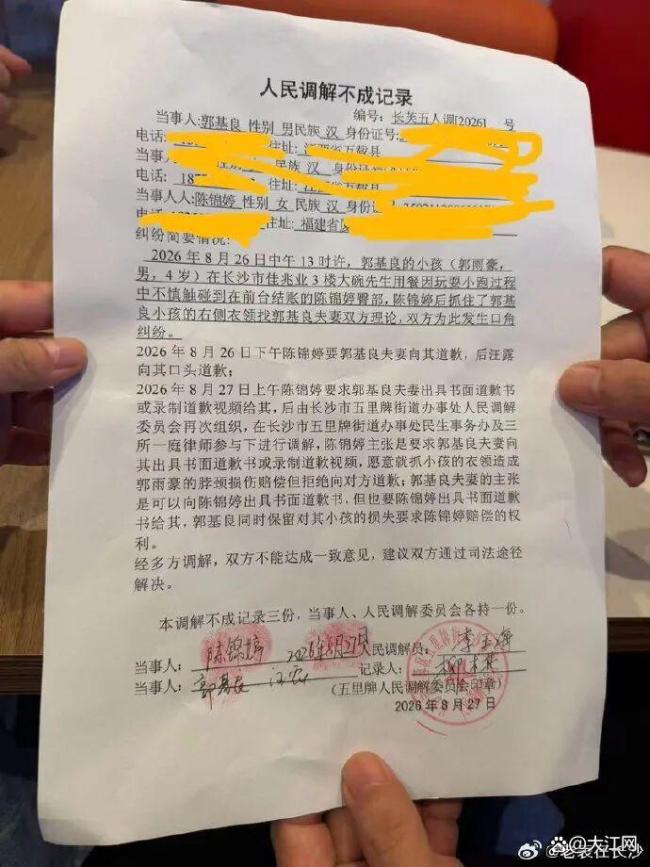 人民调解不成记录
编号：长芙五人调[2026] 号
当事人:郭基良 性别 男民族 汉 身份证号:
电话: 住址:
当事人: 民族 汉 身份证
电话: 187 住址:
当事人人:陈锦婷 性别 女 民族 汉 身份
电话: 住址: 福建省
纠纷简要情况:
2026 年 8 月 26 日中午 13 时许，郭基良的小孩（郭雨豪，
男，4 岁）在长沙市佳兆业 3 楼大碗先生用餐因玩耍小跑过程
中不慎触碰到在前台结账的陈锦婷臀部，陈锦婷后抓住了郭基
良小孩的右侧衣领找郭基良夫妻双方理论，双方为此发生口角
纠纷。
2026 年 8 月 26 日下午陈锦婷要郭基良夫妻向其道歉，后汪露
向其口头道歉；
2026 年 8 月 27 日上午陈锦婷要求郭基良夫妻出具书面道歉书
或录制道歉视频给其，后由长沙市五里牌街道办事处人民调解
委员会再次组织，在长沙市五里牌街道办事处民生事务办及三
所一庭律师参与下进行调解，陈锦婷主张是要求郭基良夫妻向
其出具书面道歉书或录制道歉视频，愿意就抓小孩的衣领造成
郭雨豪的脖颈损伤赔偿但拒绝向对方道歉；郭基良夫妻的主张
是可以向陈锦婷出具书面道歉书，但也要陈锦婷出具书面道歉
书给其，郭基良同时保留对其小孩的损失要求陈锦婷赔偿的权
利。
经多方调解，双方不能达成一致意见，建议双方通过司法途径
解决。
本调解不成记录三份，当事人、人民调解委员会各持一份。
当事人：陈锦婷 2026年8月27日 民调解员：
当事人：郭基良 记录人：
（五里牌人民调解委员会印章）
2026 年 8 月 27 日
@老表在长沙
@大江网